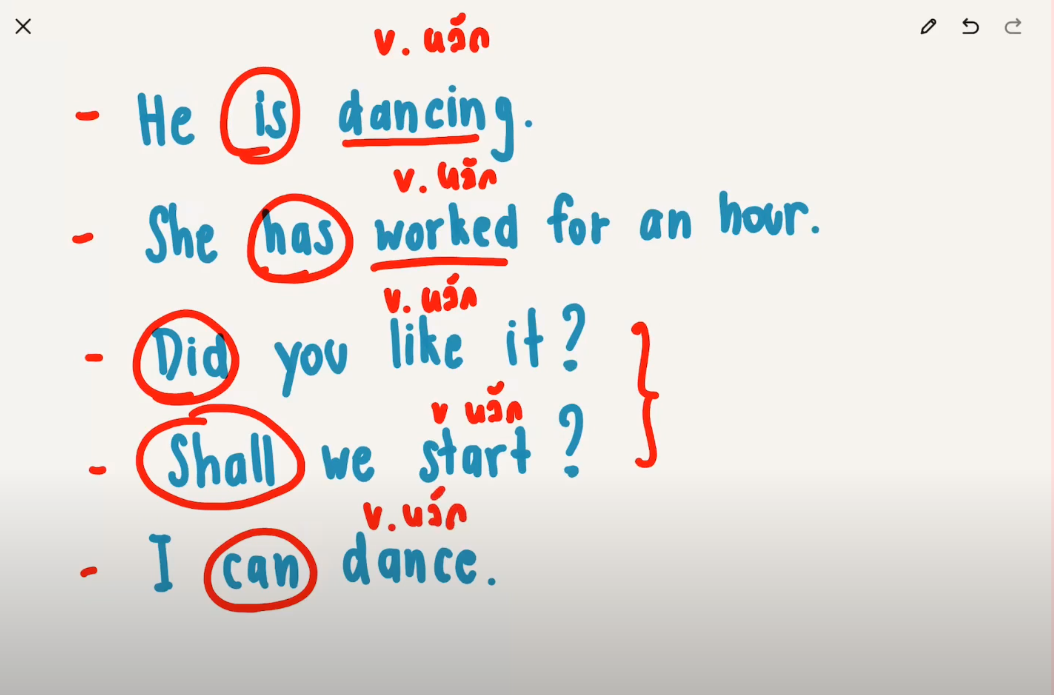 v. หลัก
- He is dancing.
v. หลัก
- She has worked for an hour.
v. หลัก
- Did you like it?
v หลัก
- Shall we start?
v. หลัก
- I can dance.